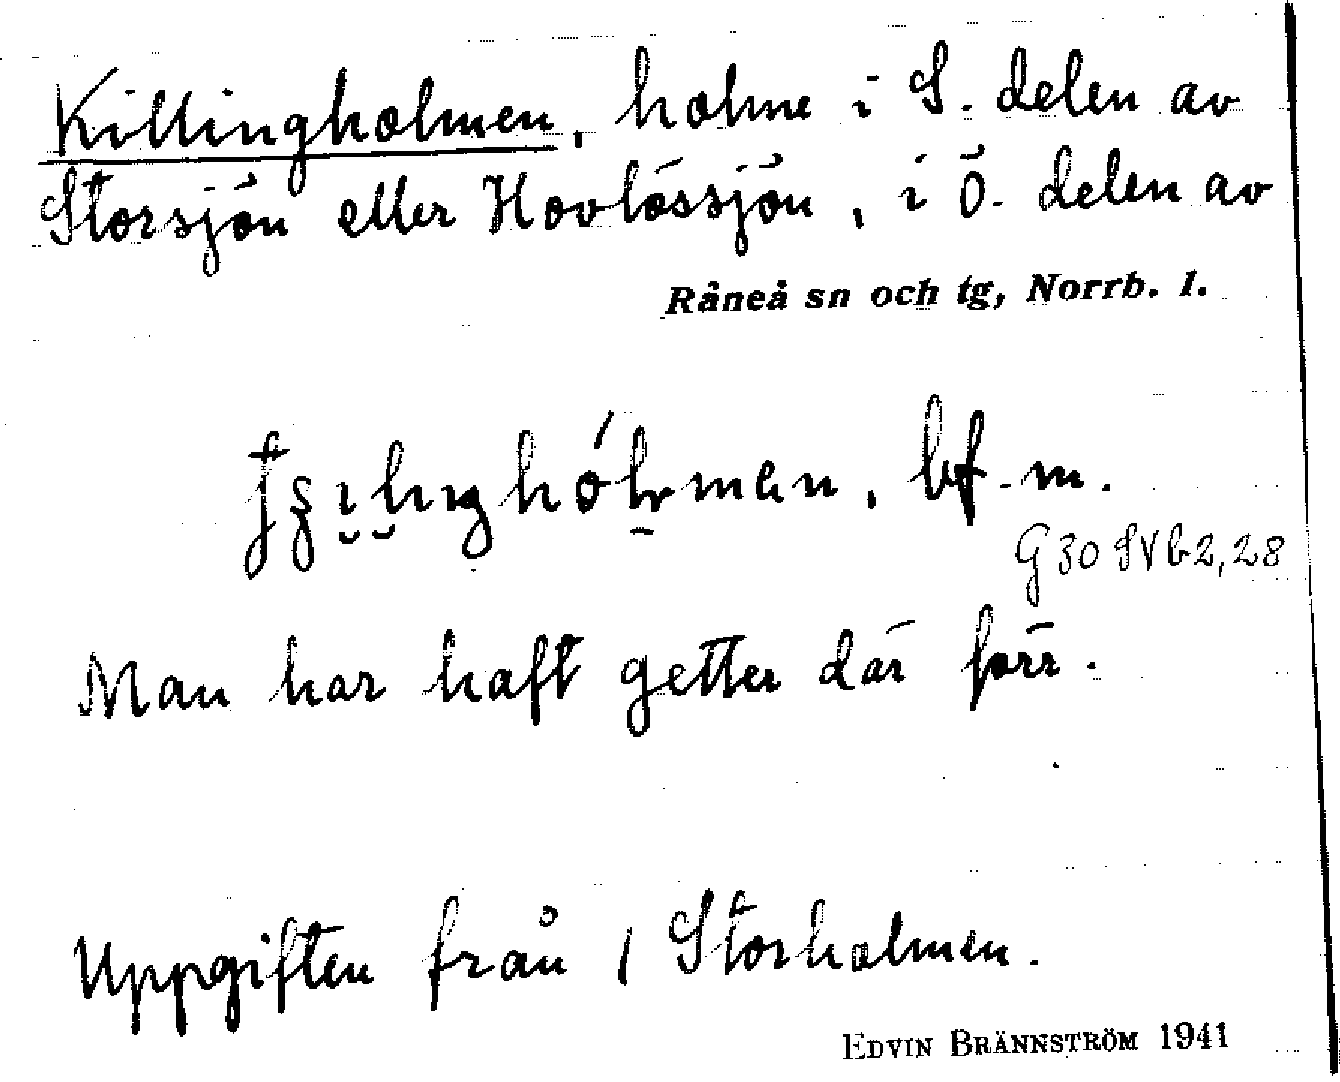 Killingholmen, holme i S. delen av
Storsjön eller Hovlössjön, i Ö. delen av
Råneå sn och tg, Norrb. l.
bf. m.
G 30 SV b 2, 28
Man har haft getter där förr.
Uppgiften från 1 Storholmen.
EDVIN BRÄNNSTRÖM 1941